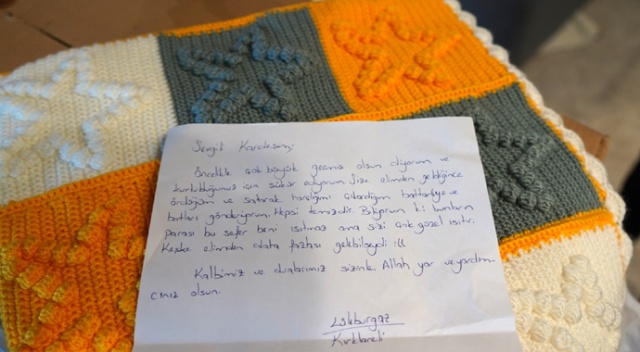 Sevgili Kardeşim;
Öncelikle çok büyük geçmiş olsun diyorum ve
kurtulduğunuz için şükür ediyorum. Size elimden geldiğince
ördüğüm ve satarak harçlığımı çıkardığım battaniye ve
bunları gönderiyorum. Hepsi temizdir. Biliyorum ki bunların
parası bu sefer beni ısıtmaz ama sizi çok güzel ısıtır.
Keşke elimden daha fazlası gelebilseydi :((
Kalbimiz ve dualarımız sizinle. Allah yar ve yardım-
cınız olsun.
Lüleburgaz
Kırklareli